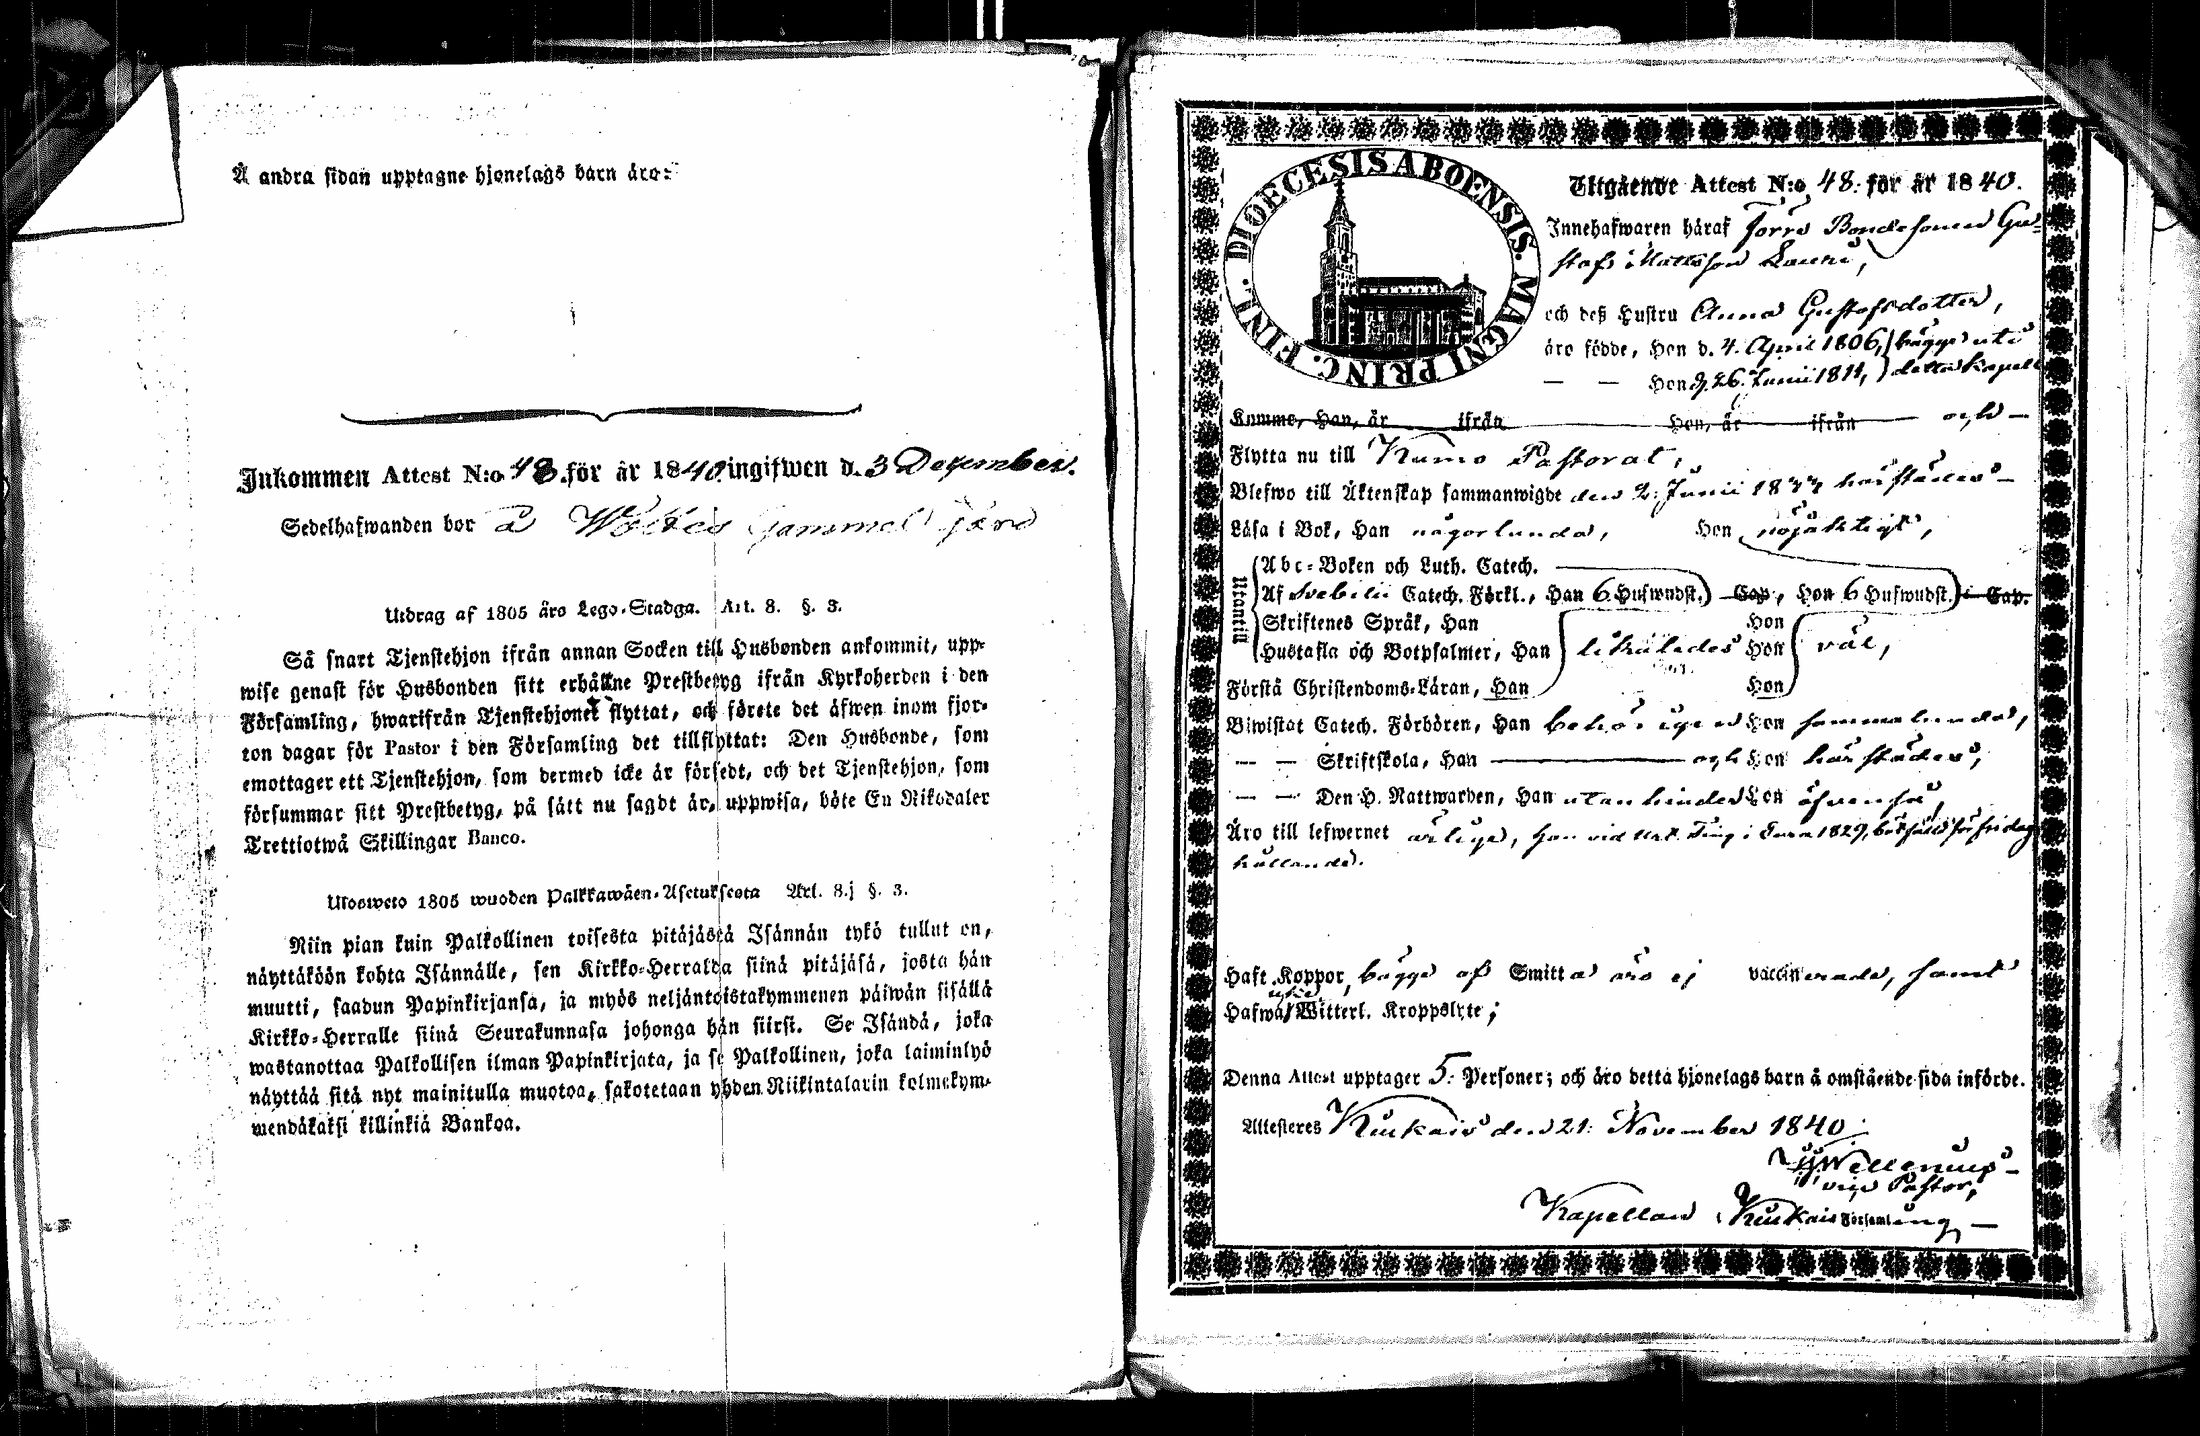 Å andra sidan upptagne hjonelags barn äro:
Inkommen Attest N:o 48. för år 1840 ingifwen d. 3 December.
Sedelhafwanden bor å Gammel
Utdrag af 1805 års Lego-Stadga. Art. 8. §. 3.
Så snart Tjenstehjon ifrån annan Socken till Husbonden ankommit, upp-
wise genast för Husbonden sitt erhållne Prestbetyg ifrån Kyrkoherden i den
Församling, hwarifrån Tjenstehjonet flyttat, och förete det äfwen inom fjor-
ton dagar för Pastor i den Församling det tillflyttat: Den Husbonde, som
emottager ett Tjenstehjon, som dermed icke är försedt, och det Tjenstehjon, som
försummar sitt Prestbetyg, på sätt nu sagdt är, uppwisa, böte En Riksdaler
Trettiotwå Skillingar Banco.
Ulosweto 1805 wuoden Palkkawäen-Asetuksesta Art. 8.j §. 3.
Niin pian kuin Palkollinen toisesta pitäjästä Isännän tykö tullut on,
näyttäköön kohta Isännälle, sen Kirkko-Herralda siinä pitäjäsä, josta hän
muutti, saadun Papinkirjansa, ja myös neljäntoistakymmenen päiwän sisällä
Kirkko-Herralle siinä Seurakunnasa johonga hän siirsi. Se Isändä, joka
wastanottaa Palkollisen ilman Papinkirjata, ja se Palkollinen, joka laiminlyö
näyttää sitä nyt mainitulla muotoa, sakotetaan yhden Riikintalarin kolmekym-
mendäkaksi killinkiä Bankoa.
DIOECESIS ABOENSIS. MAGNI PRINC. FINL.
Utgående Attest N:o 48. för år 1840.
Innehafwaren häraf Förre Bondesonen Gu-
staf Mattsson Lauri,
och deß Hustru Anna Gustafsdotter,
äro födde, Han d. 4. April 1806, bägge uti
— — Hon d. 26. Junii 1811, detta kapell
Komme, Han, år ifrån Hon, år ifrån och —
Flytta nu till Kumo Pastorat,
Blefwo till Äktenskap sammanwigde den 2. Junii härstädes —
Läsa i Bok, Han någorlunda, Hon nöjaktigt,
Utantill
Abc-Boken och Luth. Catech.
Af Svebilii Catech. Förkl., Han 6 Hufwudst. Cap., Hon 6 Hufwudst. i Cap.
Skriftenes Språk, Han Hon
Hustafla och Botpsalmer, Han likaledes Hon väl,
Förstå Christendoms-Läran, Han Hon
Biwistat Catech. Förhören, Han behörigen Hon sammalunda,
— — Skriftskola, Han — och Hon härstädes,
— — Den H. Nattwarden, Han utan hinder Hon äfvenså,
Äro till lefwernet ärlige, han vid Ting i Eura 1829,
hållande.
Haft Koppor, bägge af Smitta äro ej vaccinerade, samt
Hafwa icke Witterl. Kroppslyte;
Denna Attest upptager 5. Personer; och äro detta hjonelags barn å omstående sida införde.
Attesteres Kiukais den 21. November 1840
vice Pastor,
Kapellan i Kiukais Församling —